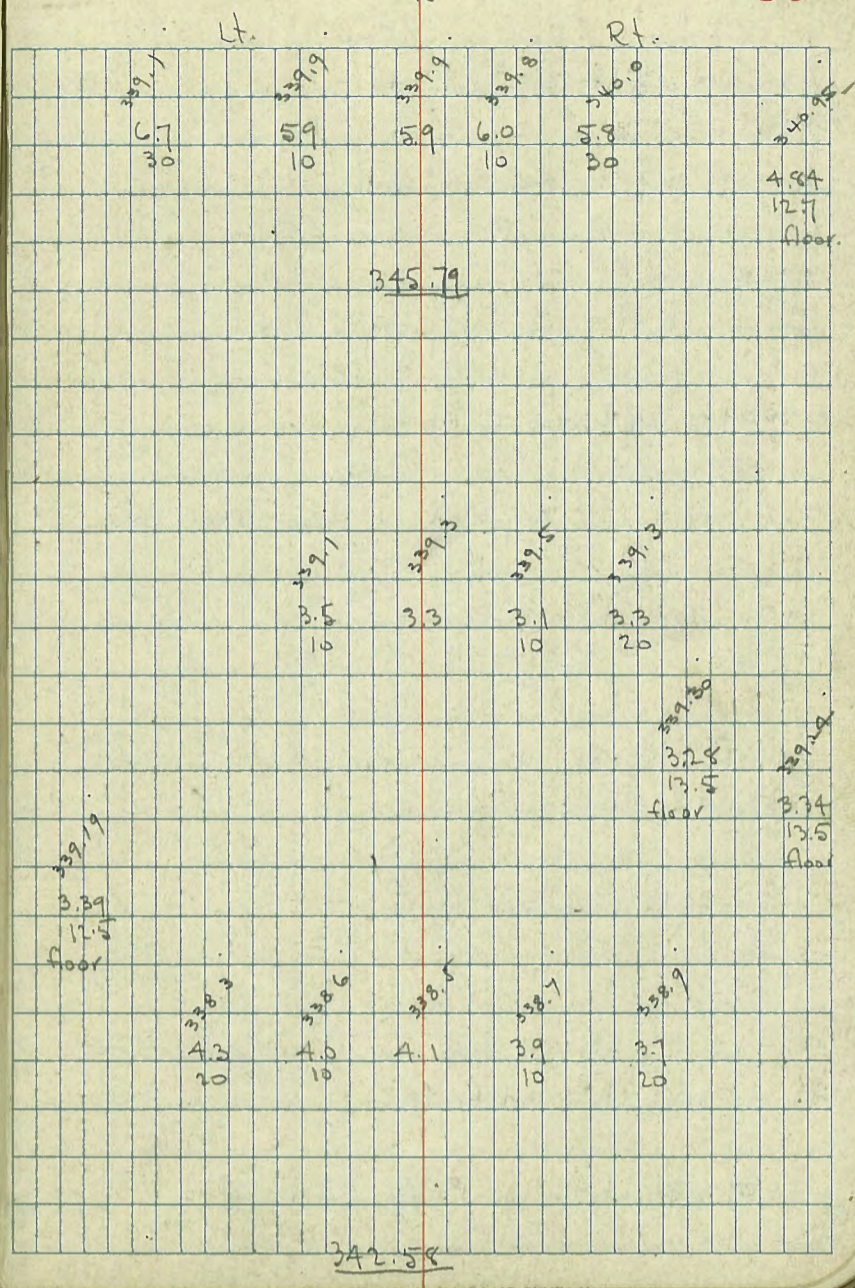 Lt. Rt.
339.1 339.9 339.9 339.8 340.0
6.7 5.9 5.9 6.0 5.8
30 10 10 30
340.95
4.84
12.7
floor.
345.79
339.1 339.3 339.5 339.3
3.5 3.3 3.1 3.3
10 10 20
339.30
3.28
13.5
floor
339.24
3.34
13.5
floor
339.19
3.39
12.5
floor
338.3 338.6 338.5 338.7 338.9
4.3 4.0 4.1 3.9 3.7
20 10 10 20
342.58